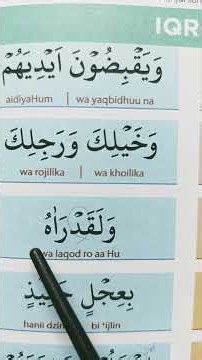 IQR
وَيَقْبِضُوْنَ اَيْدِيَهُمْ
aidiyaHum | wa yaqbidhuu na
وَخَيْلِكَ وَرَجِلِكَ
wa rojilika | wa khoilika
وَلَقَدْرَاٰهُ
wa laqod ro aa Hu
بِعِجْلٍ حَنِيْذٍ
hanii dzin bi 'ijlin